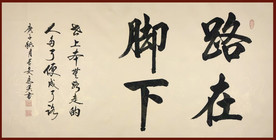 路在
脚下
世上本無路走的
人多了便成了路
庚子秋月